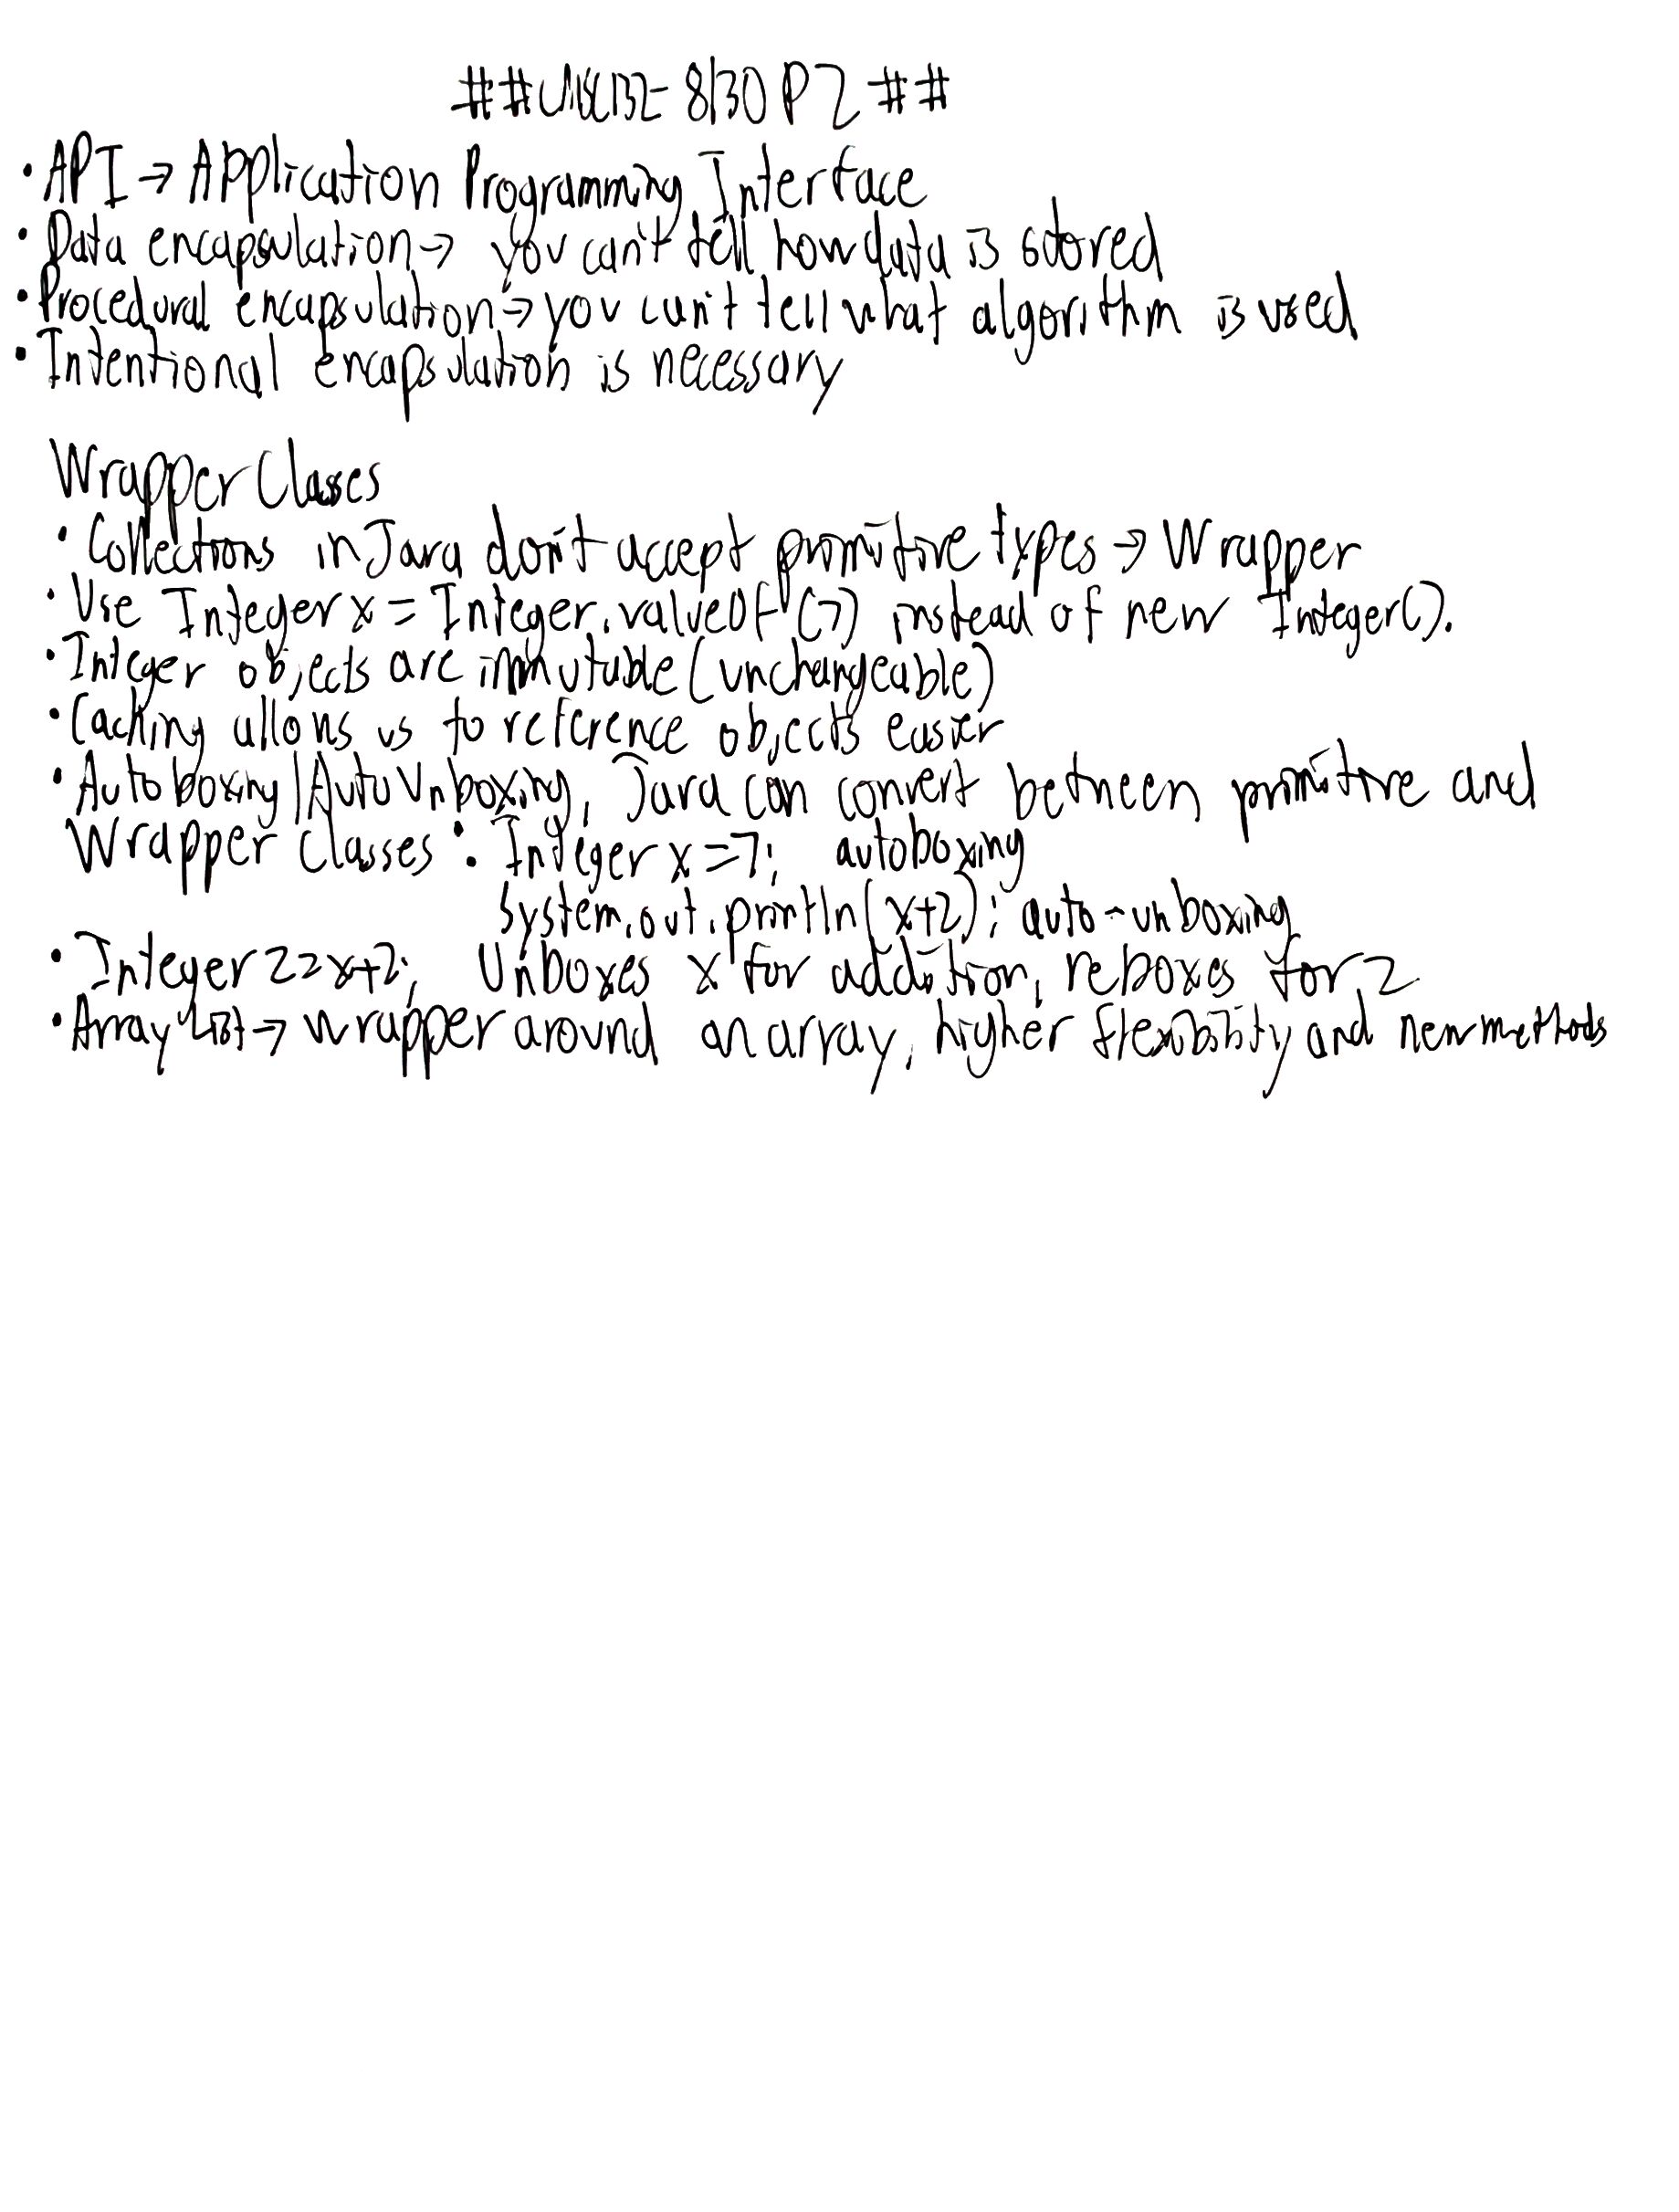 ## CMSC132- 8/30 P2 ##
• API → Application Programming Interface
• Data encapsulation → you can't tell how data is stored
• Procedural encapsulation → you can't tell what algorithm is used
• Intentional encapsulation is necessary
Wrapper Classes
• Collections in Java don't accept primitive types → Wrapper
• Use Integer x = Integer.valueOf (7) instead of new Integer().
• Integer objects are immutable (unchangeable)
• Caching allows us to reference objects easier
• Autoboxing/Auto Unboxing, Java can convert between primitive and
Wrapper Classes : Integer x = 7; autoboxing
System.out.println(x+2); auto-unboxing
• Integer z = x+2; Unboxes x for addition, reboxes for z
• Array List → wrapper around an array, higher flexibility and new methods